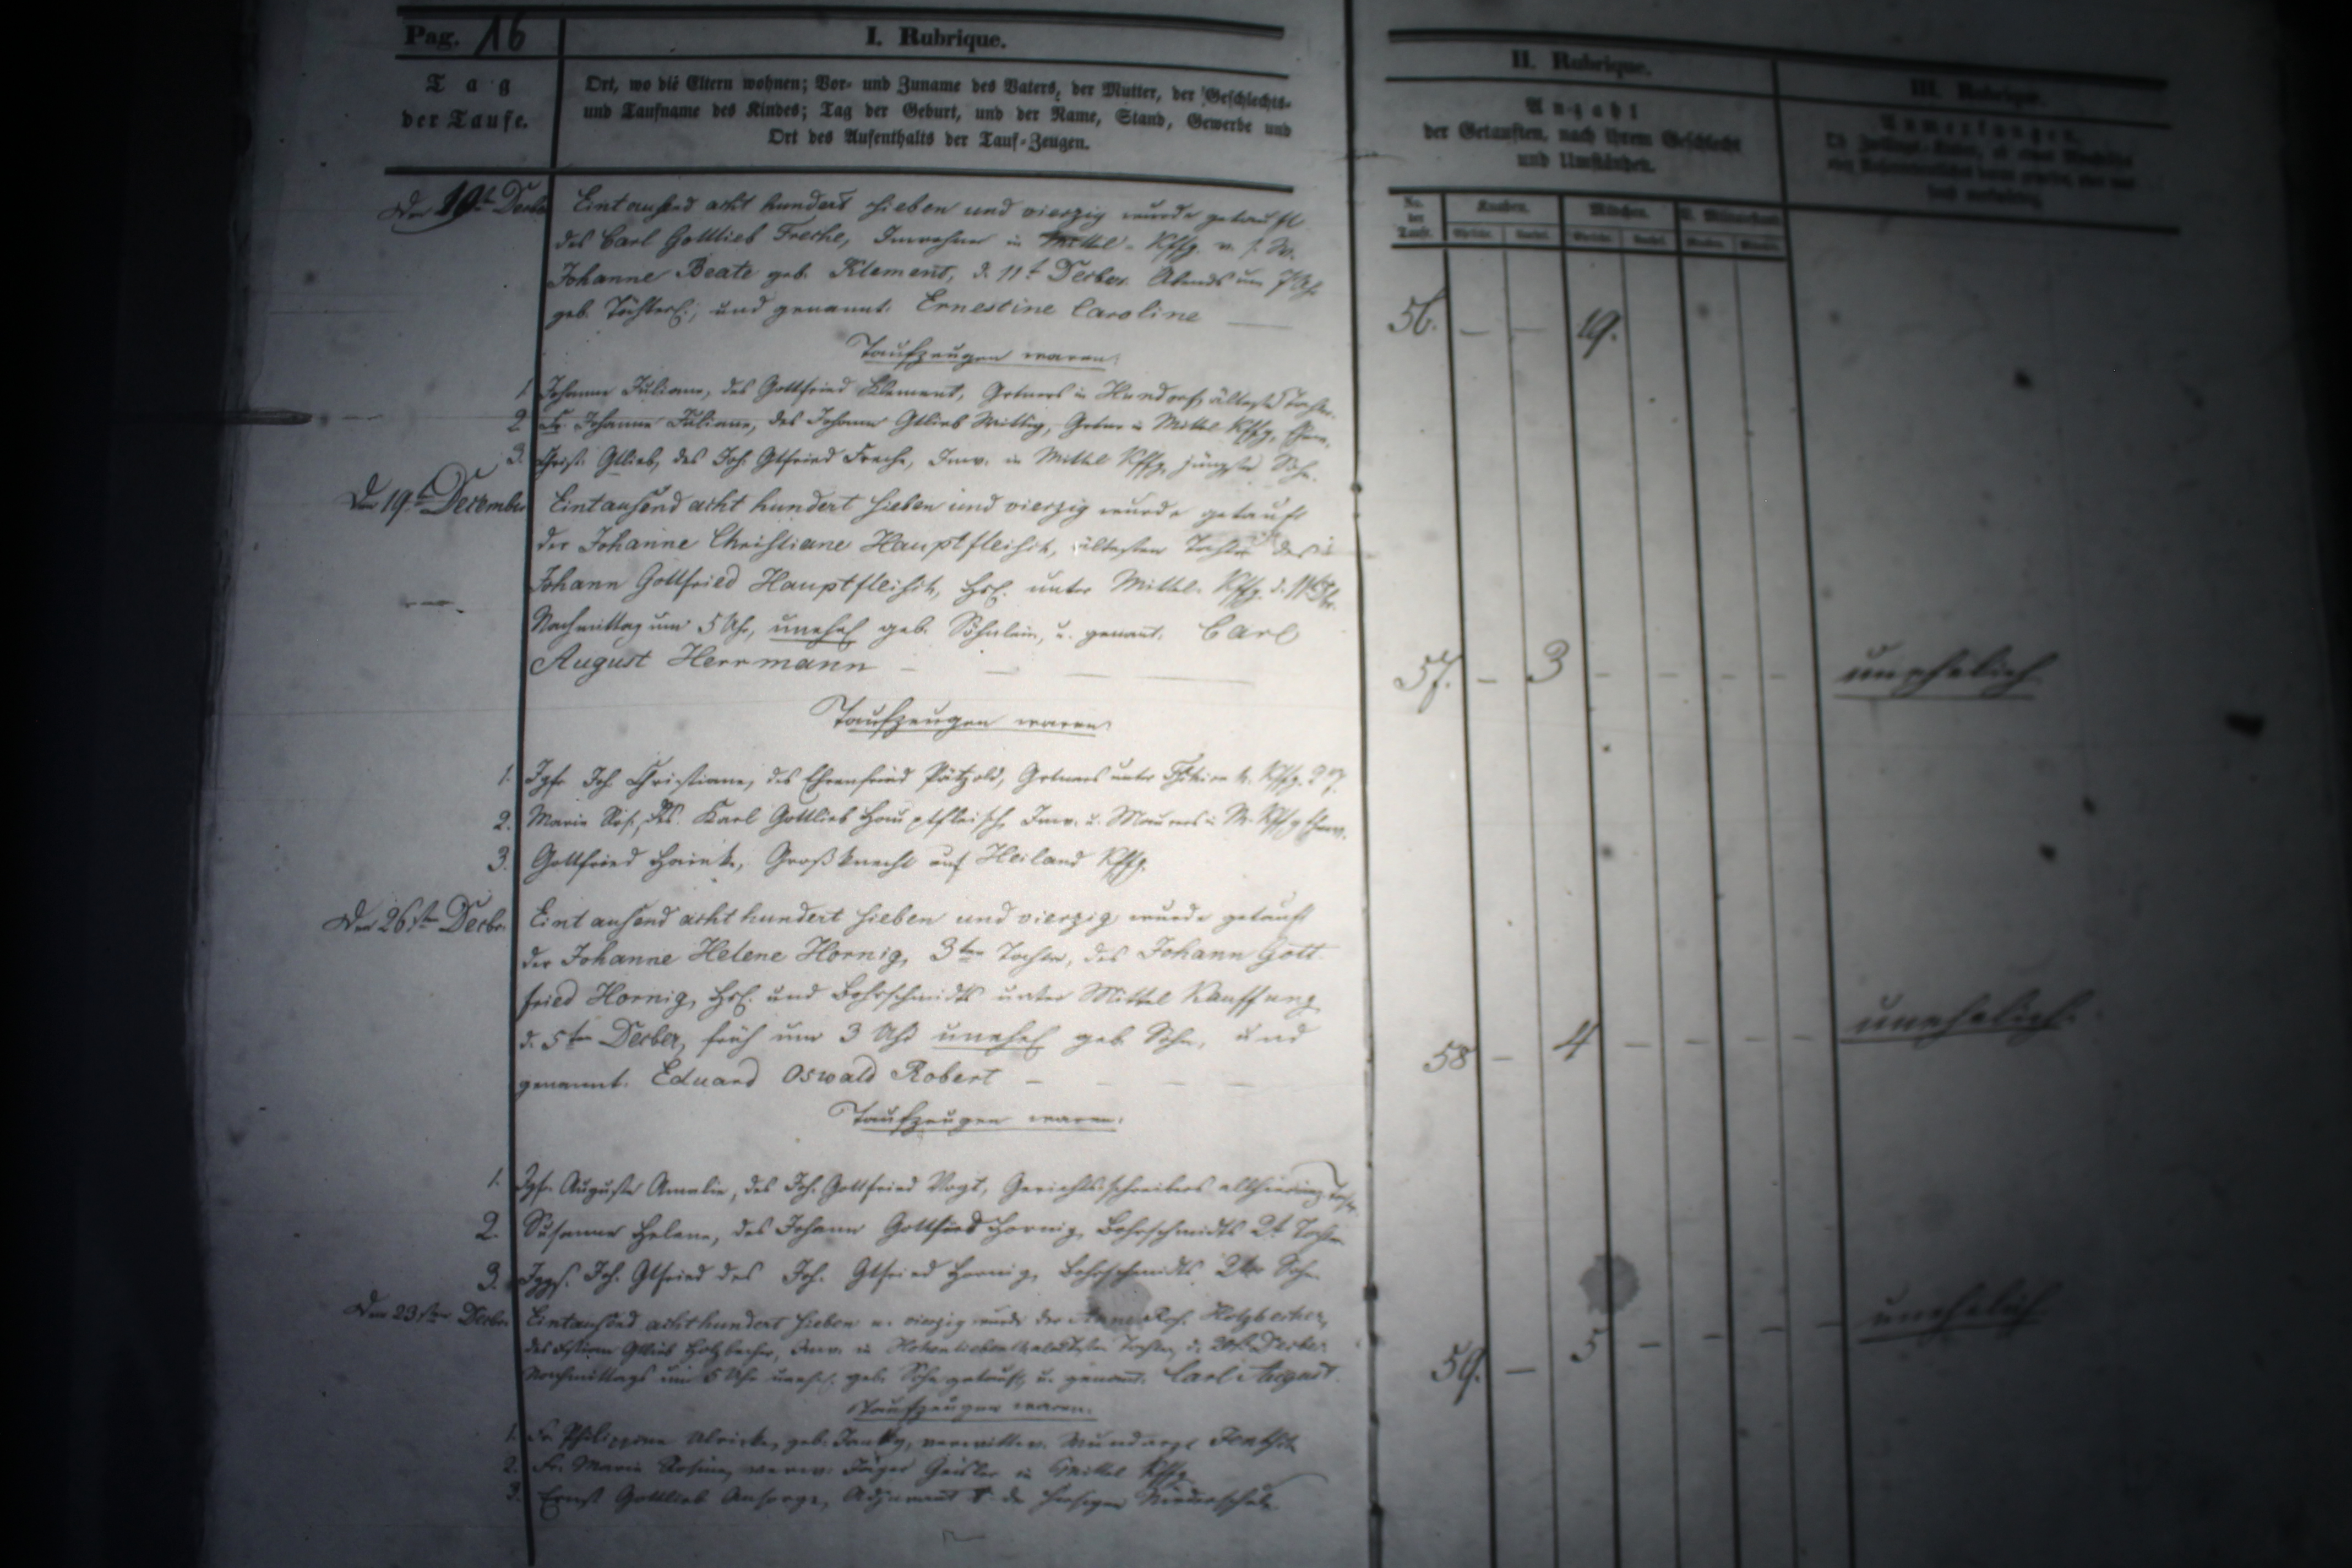 Pag. 16
I. Rubrique.
Tag
der Taufe.
Ort, wo die Eltern wohnen; Vor- und Zuname des Vaters, der Mutter, der Geschlechts-
und Taufname des Kindes; Tag der Geburt, und der Name, Stand, Gewerbe und
Ort des Aufenthalts der Tauf-Zeugen.
II. Rubrique.
Anzahl
der Getauften, nach ihrem Geschlecht
und Umständen.
III. Rubrique.
Anmerkungen.
No.
der
Taufe.
Knaben.
Mädchen.
Den 19t Decbr Eintausend acht hundert sieben und vierzig wurde getauft
des Carl Gottlieb Freche, Inwohner in Mittel-Kffg.
Johanne Beate geb. Klement, d. 11t Decbr. Abends um 7 Uhr
geb. Töchterl., und genannt: Ernestine Caroline
56. — — 19.
Taufzeugen waren:
1. Johanne Juliane, des Gottfried Klement, Grtners in Hundorf, älteste Tochter.
2. Fr. Johanne Juliane, des Johann Gtlieb Wittig, Grtner in Mittel Kffg.
3. Christ. Gtlieb, des Joh. Gtfried Freche, Inw. in Mittel Kffg. jüngster Sohn.
Den 19t December Eintausend acht hundert sieben und vierzig wurde getauft
der Johanne Christiane Hauptfleisch, ältesten Tochter des
Johann Gottfried Hauptfleisch, Hsl. unter Mittel-Kffg.
Nachmittag um 5 Uhr, unehel geb. Söhnlein, u. genant. Carl
August Herrmann
57. — 3 — — — — unehelich
Taufzeugen waren:
1. Igfr Joh Christiane, des Ehrenfried Pätzold, Grtners unter
2. Marie Ros., des Karl Gottlieb Hauptfleisch, Inw. u. Maurers in M. Kffg
3. Gottfried Hainke, Großknecht auf Heiland Kffg.
Den 26sten Decbr. Eintausend acht hundert sieben und vierzig wurde getauft
der Johanne Helene Hornig, 3ten Tochter, des Johann Gott
fried Hornig, Hsl. und Bohrschmidts unter Mittel Kauffung
d. 5ten Decber, früh um 3 Uhr unehel geb Sohn, und
genannt. Eduard Oswald Robert
58 — 4 — — — — unehelich.
Taufzeugen waren:
1. Igfr. Auguste Amalie, des Joh. Gottfried Vogt, Gerichtsschreibers allhier
2. Susanne Helene, des Johann Gottfried Hornig, Bohrschmidts 2t Tochter
3. Iggs. Joh. Gtfried des Joh. Gtfried Hornig, Bohrschmidts 2ter Sohn
Den 23sten Decbr Eintausend achthundert sieben u. vierzig wurde der Anne Ros. Holzbecher,
des Gtlieb Holzbecher, Inw. in Hohenliebenthal Tochter, d. Decber
Nachmittags um 5 Uhr unehel. geb. Sohn getauft, u. genannt. Carl August
59. — 5 — — — — unehelich
Taufzeugen waren.
1. Fr Philippine Ulricke, geb. verwittw. Wundarzt
2. Fr. Marie Rosine, verw. Jäger Geisler in Mittel Kffg
3. Ernst Gottlieb Ansorge, Adjuvant Niederschule.